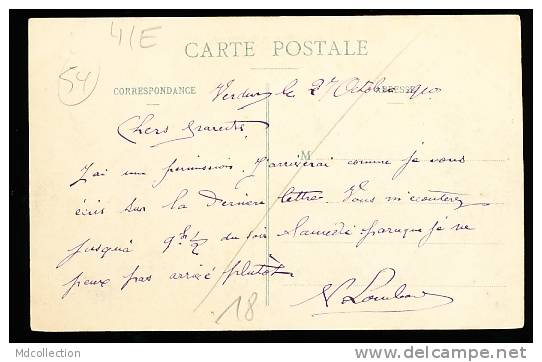 4/E
54
CARTE POSTALE
CORRESPONDANCE
Verdun le 27 Octobre 1910
Chers parents
M
J'ai une permission. J'arriverai comme je vous
écris sur la dernière lettre. Vous m'écouterez
jusqu'à 9h 1/2 du soir Samedi parceque je ne
peux pas arrivé plutôt
18
Mdcollection
http://www.delcampe.net